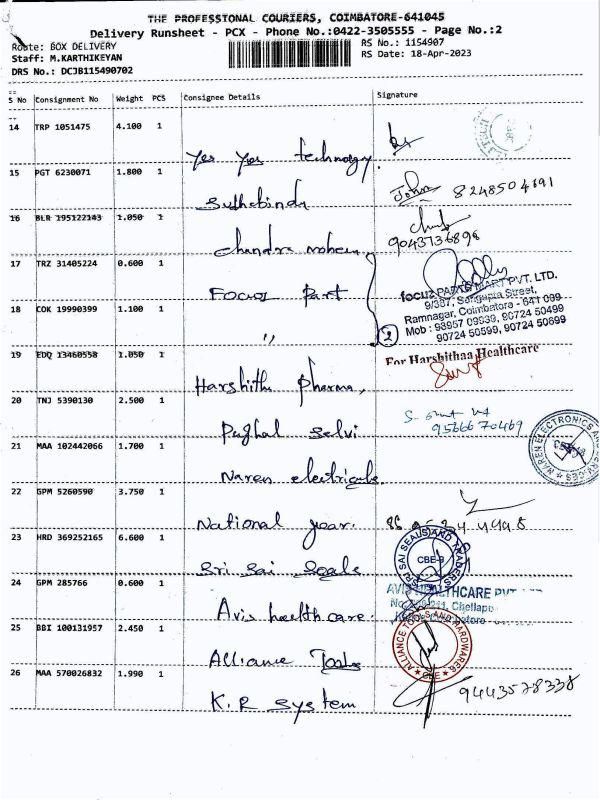 THE PROFESSIONAL COURIERS, COIMBATORE-641045
Delivery Runsheet - PCX - Phone No.:0422-3505555 - Page No.:2
Route: BOX DELIVERY
RS No.: 1154907
Staff: M.KARTHIKEYAN
RS Date: 18-Apr-2023
DRS No.: DCJB115490702
S No Consignment No Weight PCS Consignee Details Signature
14 TRP 1051475 4.100 1
Yes Yes technology
15 PGT 6230071 1.800 1
John 8248504691
Suthabindu
16 BLR 195122143 1.050 1
9043736896
Chandra mohan
17 TRZ 31405224 0.600 1
Focuz Part
focuz PARTS MART PVT. LTD.
9/387, Sengupta Street,
Ramnagar, Coimbatore - 641 009
Mob : 98957 09939, 90724 50499
90724 50599, 90724 50699
18 COK 19990399 1.100 1
"
2
19 EDQ 13460558 1.050 1
For Harshithaa Healthcare
Harshitha pharma,
20 TNJ 5390130 2.500 1
95666 70469
Pughal selvi
21 MAA 102442066 1.700 1
NAREN ELECTRONICS AND SERVICES
Naren electricals
22 GPM 5260590 3.750 1
National gear.
23 HRD 369252165 6.600 1
SRI SAI SEALS AND TRADERS
CBE-9
Sri Sai Seals
24 GPM 285766 0.600 1
AVIS HEALTHCARE PVT
Avis health care
25 BBI 100131957 2.450 1
ALLIANCE TOOLS AND HARDWARES
CBE
Alliance Tools
26 MAA 570026832 1.990 1
9443578338
K.R System